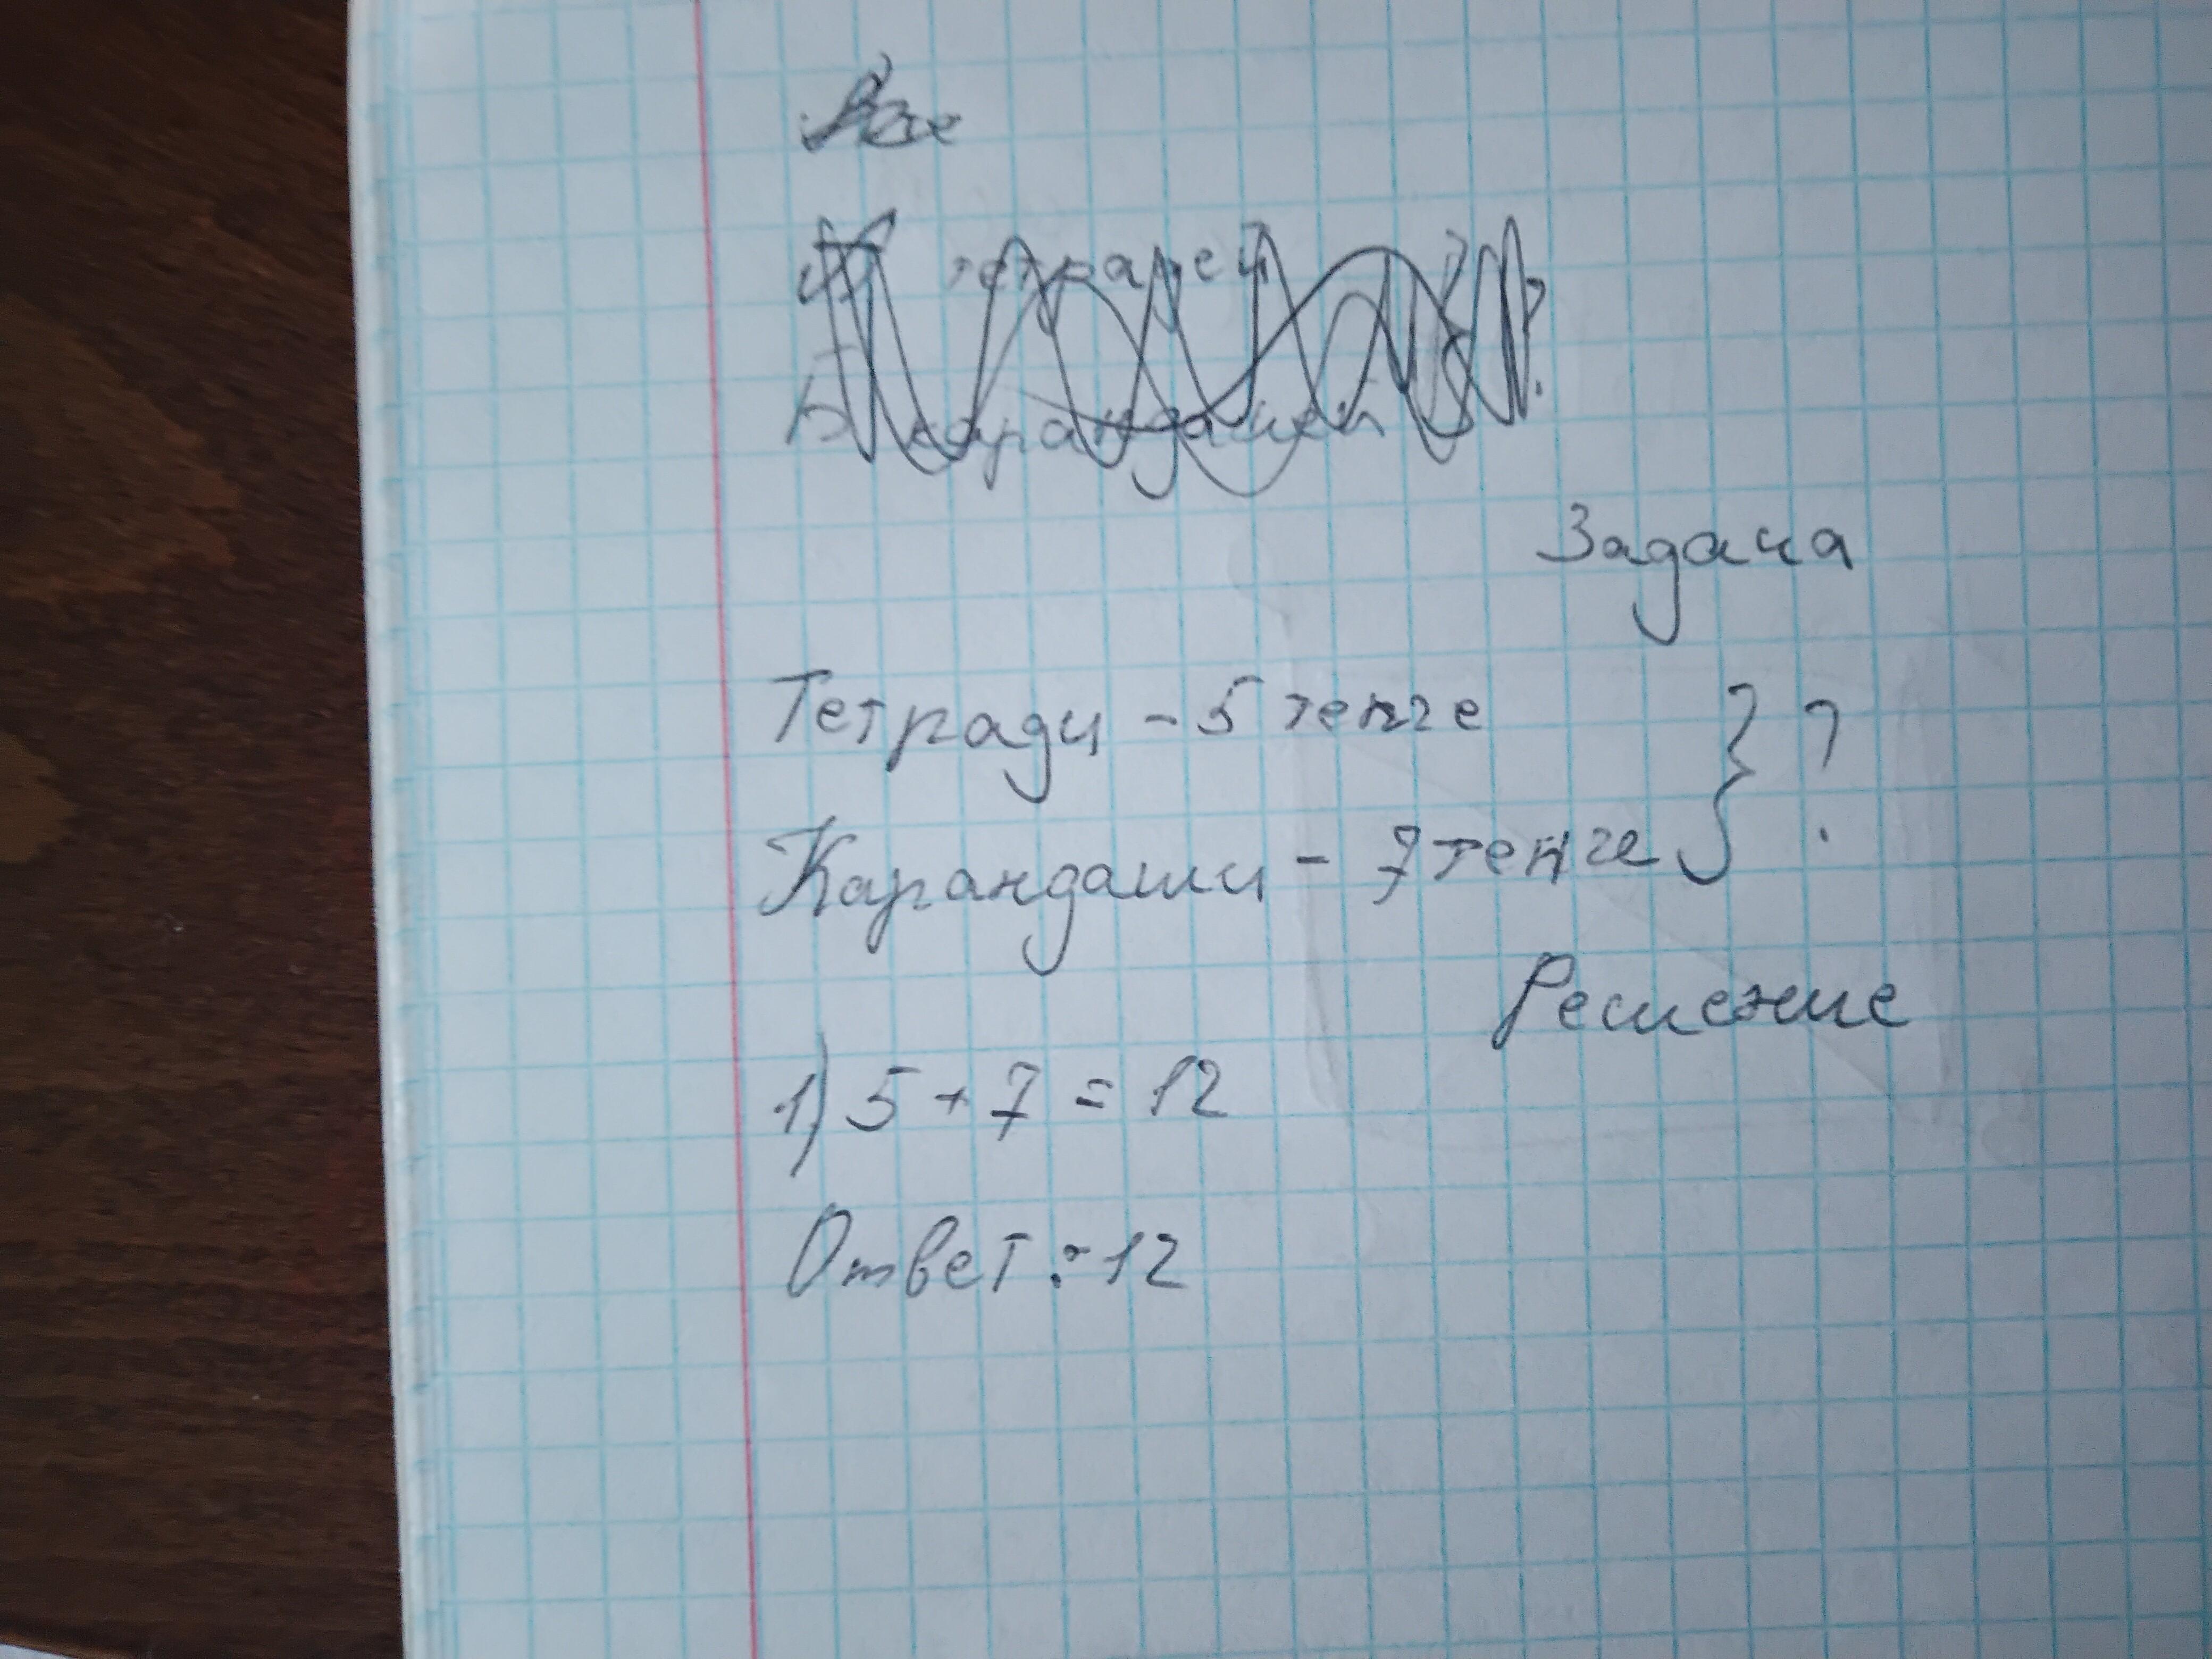 Задача
Тетради - 5 тенге
Карандаши - 7 тенге } ?
Решение
1) 5 + 7 = 12
Ответ: 12